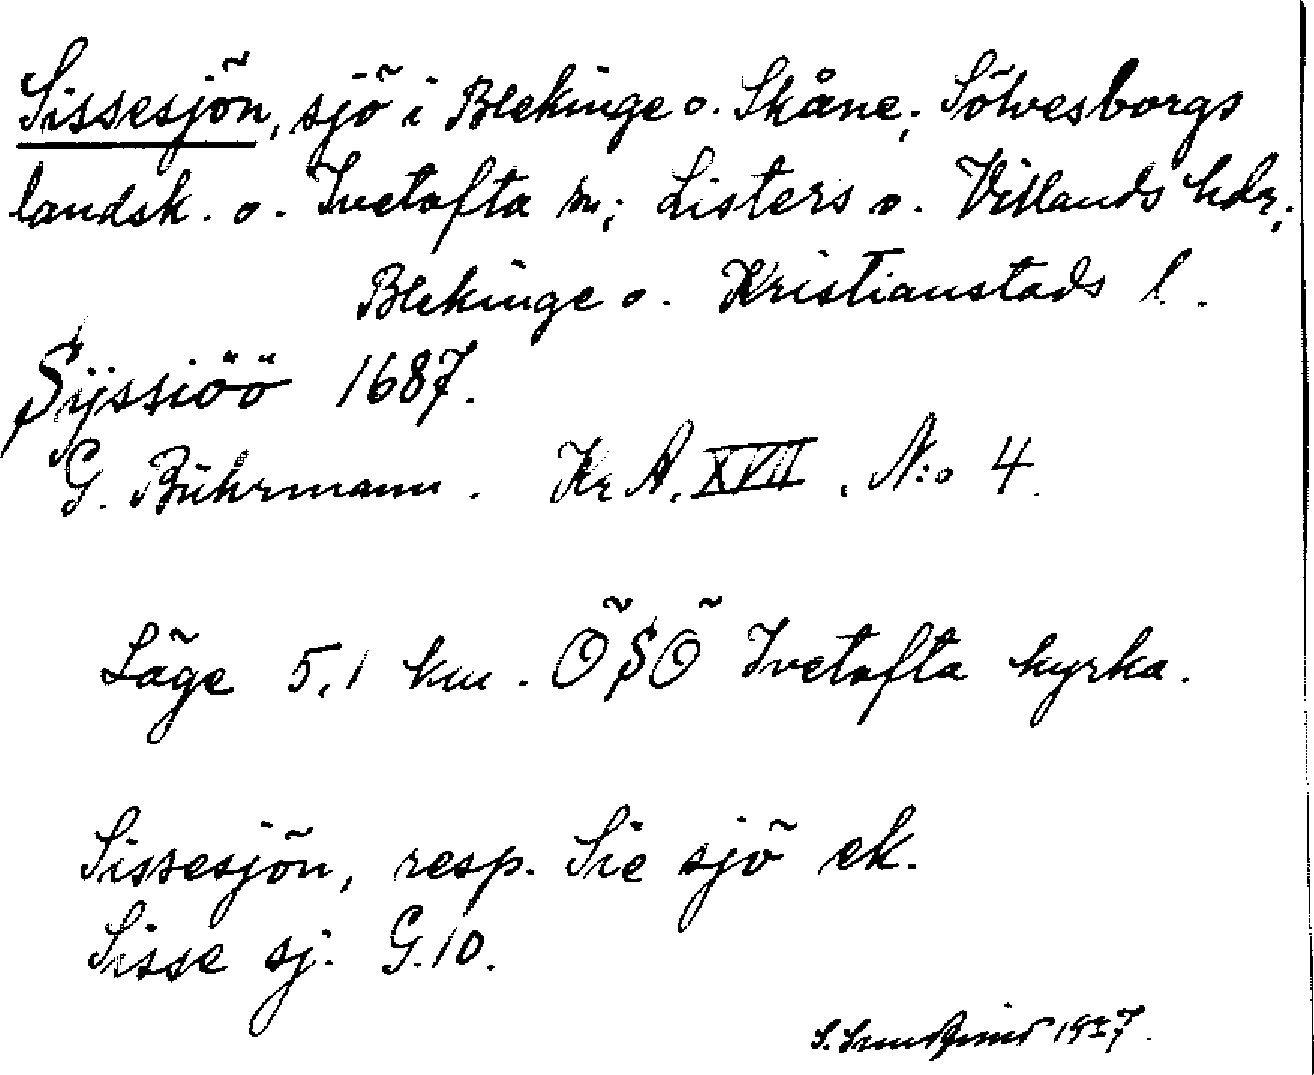 Sissesjön, sjö i Blekinge o. Skåne; Sölvesborgs
landsk. o. Ivetofta sn; Listers o. Villands hdr;
Blekinge o. Kristianstads l.
Sijssiöö 1687.
G. Bührmann. Kr A. XVII. N:o 4.
Läge 5,1 km. ÖSÖ Ivetofta kyrka.
Sissesjön, resp. Sie sjö ek.
Sisse sj. G.10.
S. 1927.